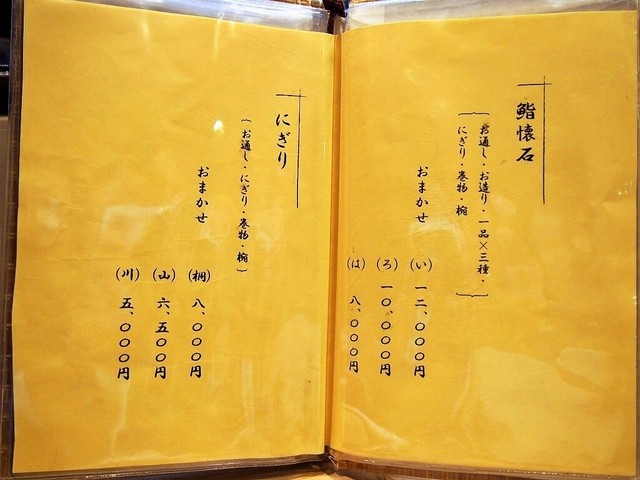 鮨懐石
〔お通し・お造り・一品×三種・
にぎり・巻物・椀〕
おまかせ
(い) 一二、〇〇〇円
(ろ) 一〇、〇〇〇円
(は) 八、〇〇〇円
にぎり
〔お通し・にぎり・巻物・椀〕
おまかせ
(桐) 八、〇〇〇円
(山) 六、五〇〇円
(川) 五、〇〇〇円